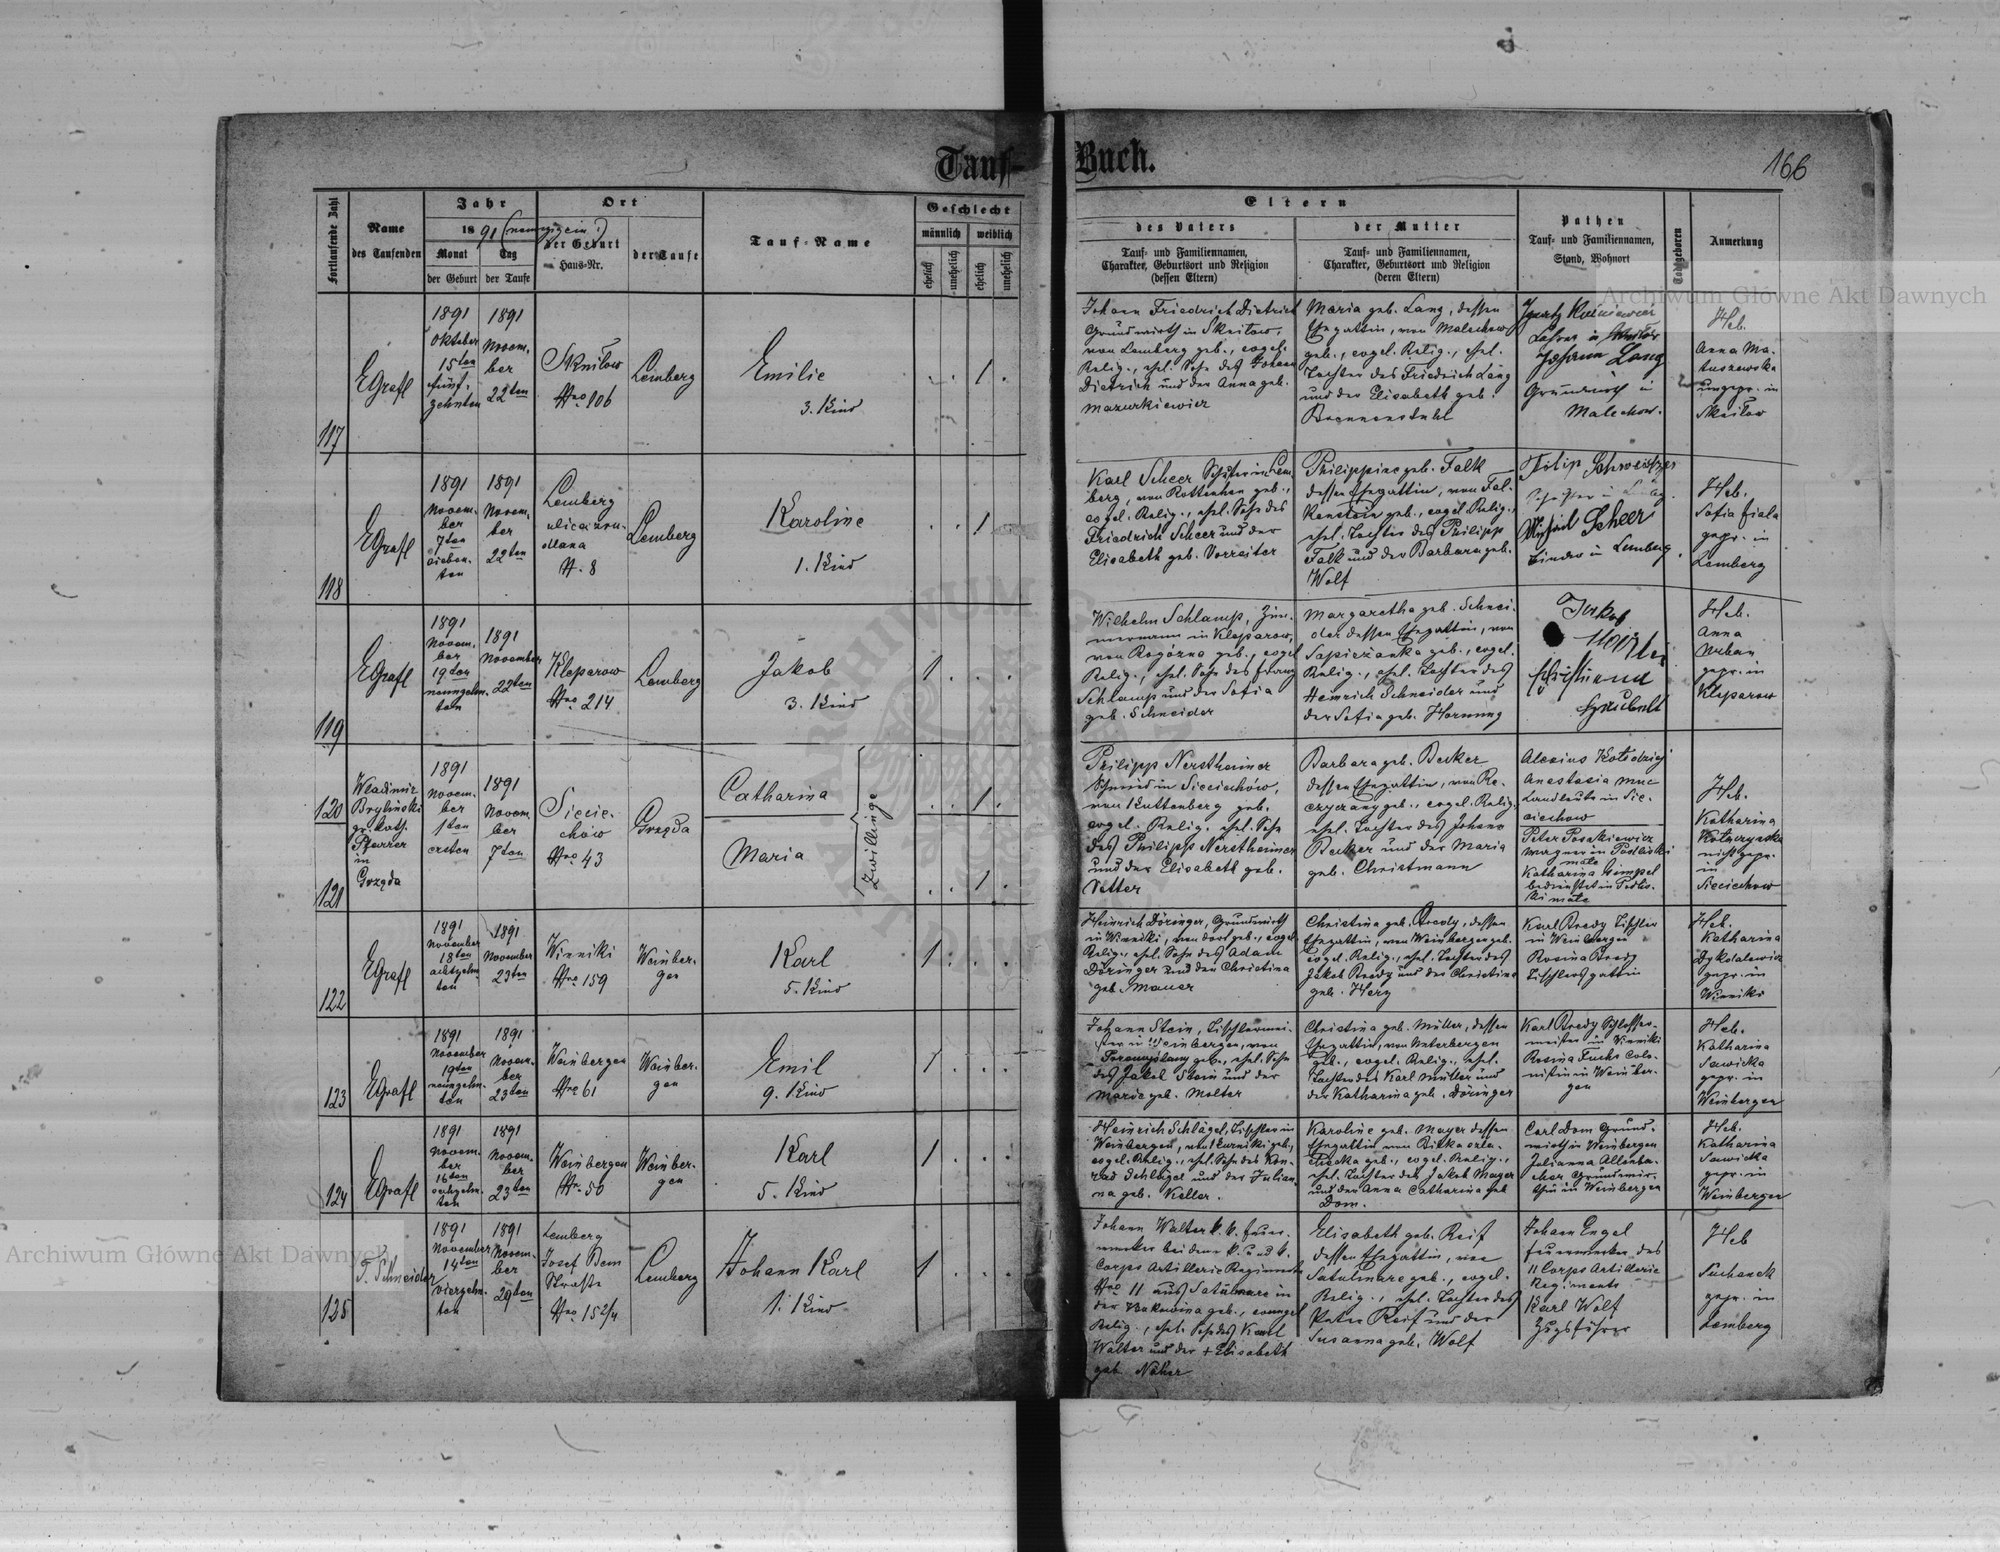 Tauf-Buch.
166
Fortlaufende Zahl
Name
des Taufenden
Jahr
1891
Monat
der Geburt
Tag
der Taufe
Ort
der Geburt
Haus-Nr.
der Taufe
Tauf-Name
Geschlecht
männlich
weiblich
ehelich
unehelich
ehelich
unehelich
Eltern
des Vaters
Tauf- und Familiennamen,
Charakter, Geburtsort und Religion
(dessen Eltern)
der Mutter
Tauf- und Familiennamen,
Charakter, Geburtsort und Religion
(deren Eltern)
Pathen
Tauf- und Familiennamen,
Stand, Wohnort
Todtgeboren
Anmerkung
117
EGrafl
1891
Oktober
15ten
fünf-
zehnten
1891
Novem-
ber
22ten
Skniłow
Nro 106
Lemberg
Emilie
3. Kind
1
Johann Friedrich Dietrich
Grundwirth in Skniłow,
von Lemberg geb., evgel.
Relig., ehel. Sohn des Johann
Dietrich und der Anna geb.
Mazurkiewicz
Maria geb. Lang, dessen
Ehegattin, von Malechow
geb., evgel. Relig., ehel.
Tochter des Friedrich Lang
und der Elisabeth geb.
Brennenstuhl
Lehrer in
Johann Lang
in
Malechow.
Heb.
Anna Ma-
tuszewska
ungepr. in
Skniłow
118
EGrafl
1891
Novem-
ber
7ten
sieben-
ten
1891
Novem-
ber
22ten
Lemberg
ulica
N. 8
Lemberg
Karoline
1. Kind
1
Karl Scheer in Lem-
berg, von Rottenhan geb.,
evgel. Relig., ehel. Sohn des
Friedrich Scheer und der
Elisabeth geb. Vorreiter
Philippine geb. Falk
dessen Ehegattin, von Fal-
kenstein geb., evgel. Relig.,
ehel. Tochter des Philipp
Falk und der Barbara geb.
Wolf
Filip Schweitzer
Scheer
Binder in Lemberg.
Heb.
Sofia Fiala
gepr. in
Lemberg
119
EGrafl
1891
Novem-
ber
19ten
neunzehn-
ten
1891
November
22ten
Kleparow
Nro 214
Lemberg
Jakob
3. Kind
1
Wilhelm Schlamp, Zim-
mermann in Kleparow,
von Rogózna geb., evgel
Relig., ehel. Sohn des Franz
Schlamp und der Sofia
geb. Schneider
Margaretha geb. Schnei-
der dessen Ehegattin, von
Sapieżanka geb., evgel.
Relig., ehel. Tochter des
Heinrich Schneider und
der Sofia geb. Hornung
Jakob
Heb.
Anna
Urban
gepr. in
Kleparow
120
121
Wladimir
Bryliński
gr. kath.
Pfarrer
in
Grzęda
1891
Novem-
ber
1ten
ersten
1891
Novem-
ber
7ten
Siecie-
chów
Nro 43
Grzęda
Catharina
Maria
Zwillinge
1
1
Philipp Nerstheimer
Schmied in Sieciechów,
von Kuttenberg geb.
evgel. Relig. ehel. Sohn
des Philipp Nerstheimer
und der Elisabeth geb.
Vetter
Barbara geb. Becker
dessen Ehegattin, von Re-
czyczany geb., evgel. Relig.
ehel. Tochter des Johann
Becker und der Maria
geb. Christmann
Alexius Kołodziej
Anastasia Muc
Landleute in Sie-
ciechow
Peter
Wagner in Podliski
małe
Katharina Gimpel
bedienstet in Podlis-
ki małe
Heb.
Katharina
nicht gepr.
in
Sieciechow
122
EGrafl
1891
November
18ten
achtzehn-
ten
1891
November
23ten
Winniki
Nro 159
Weinber-
gen
Karl
5. Kind
1
Heinrich Döringer, Grundwirth
in Winniki, von dort geb., evgel.
Relig., ehel. Sohn des Adam
Döringer und der Christina
geb. Mauer
Christina geb. Bredy, dessen
Ehegattin, von Weinbergen geb.
evgel. Relig., ehel. Tochter des
Jakob Bredy und der Christina
geb. Herz
Karl Bredy Tischler
in Weinbergen
Rosina Bredy
Tischlersgattin
Heb.
Katharina
gepr. in
Winniki
123
EGrafl
1891
November
19ten
neunzehn-
ten
1891
Novem-
ber
23ten
Weinbergen
Nro 61
Weinber-
gen
Emil
9. Kind
1
Johann Stein, Tischlermei-
ster in Weinbergen, von
geb., ehel. Sohn
des Jakob Stein und der
Marie geb. Molter
Christina geb. Müller, dessen
Ehegattin, von Unterbergen
geb., evgel. Relig., ehel.
Tochter des Karl Müller und
der Katharina geb. Döringer
Karl Bredy Schlosser-
meister in Winniki
Rosina Fuchs Colo-
nistin in Weinber-
gen
Heb.
Katharina
Sawicka
gepr. in
Weinbergen
124
EGrafl
1891
Novem-
ber
16ten
sechzehn-
ten
1891
Novem-
ber
23ten
Weinbergen
Nr. 50
Weinber-
gen
Karl
5. Kind
1
Heinrich Schlägel, Tischler in
Weinbergen, von geb.,
evgel. Relig., ehel. Sohn des Kon-
rad Schlägel und der Julian-
na geb. Keller.
Karoline geb. Mayer dessen
Ehegattin von
geb., evgel. Relig.,
ehel. Tochter des Jakob Mayer
und der Anna Catharina geb
Dom.
Carl Dom Grund-
wirth in Weinbergen
Julianna
Grundwir-
thin in Weinbergen
Heb.
Katharina
Sawicka
gepr. in
Weinbergen
125
F. Schneider
1891
November
14ten
vierzehn-
ten
1891
Novem-
ber
29ten
Lemberg
Josef Bem
Strasse
Nro 15 2/4
Lemberg
Johann Karl
1. Kind
1
Johann Walter k. k. Feuer-
werker bei dem k. und k.
Corps Artillerie Regimente
Nro 11 aus Satulmare in
der Bukowina geb., evangel
Relig., ehel. Sohn des Karl
Walter und der + Elisabeth
geb. Näher
Elisabeth geb. Reif
dessen Ehegattin, von
Satulmare geb., evgel.
Relig., ehel. Tochter des
Peter Reif und der
Susanna geb. Wolf
Johann Engel
Feuerwerker des
11 Corps Artillerie
Regiments
Karl Wolf
Zugsführer
Heb
Suchanek
gepr. in
Lemberg
Archiwum Główne Akt Dawnych
Archiwum Główne Akt Dawnych